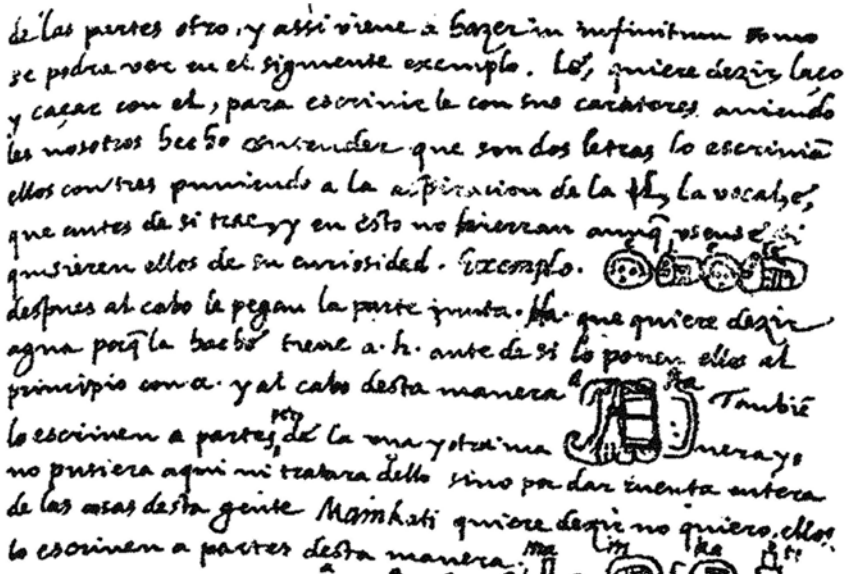 de las partes otro, y assi viene a hazer in infinitum como
se podra ver en el siguiente exemplo. Lé, quiere dezir laço
y caçar con el, para escrivirle con sus carateres aviendo
les nosotros hecho entender que son dos letras lo escriviã
ellos con tres puniendo a la aspiracion de la l, la vocal, é,
que antes de si trae, y en esto no hierran aunq̃ usense si
quisieren ellos de su curiosidad. Exemplo. e L e Lé
despues al cabo le pegan la parte junta. Ha. que quiere dezir
agua porq̃ la haché tiene a. h. ante de si lo ponen ellos al
principio con a. y al cabo desta manera a ha Tambiẽ
lo escriven a partes, pero de la una y otra ma nera yo
no pusiera aqui ni tratara dello sino por dar cuenta entera
de las cosas desta gente Mainkati quiere dezir no quiero, ellos
lo escriven a partes desta manera. ma i n ka ti